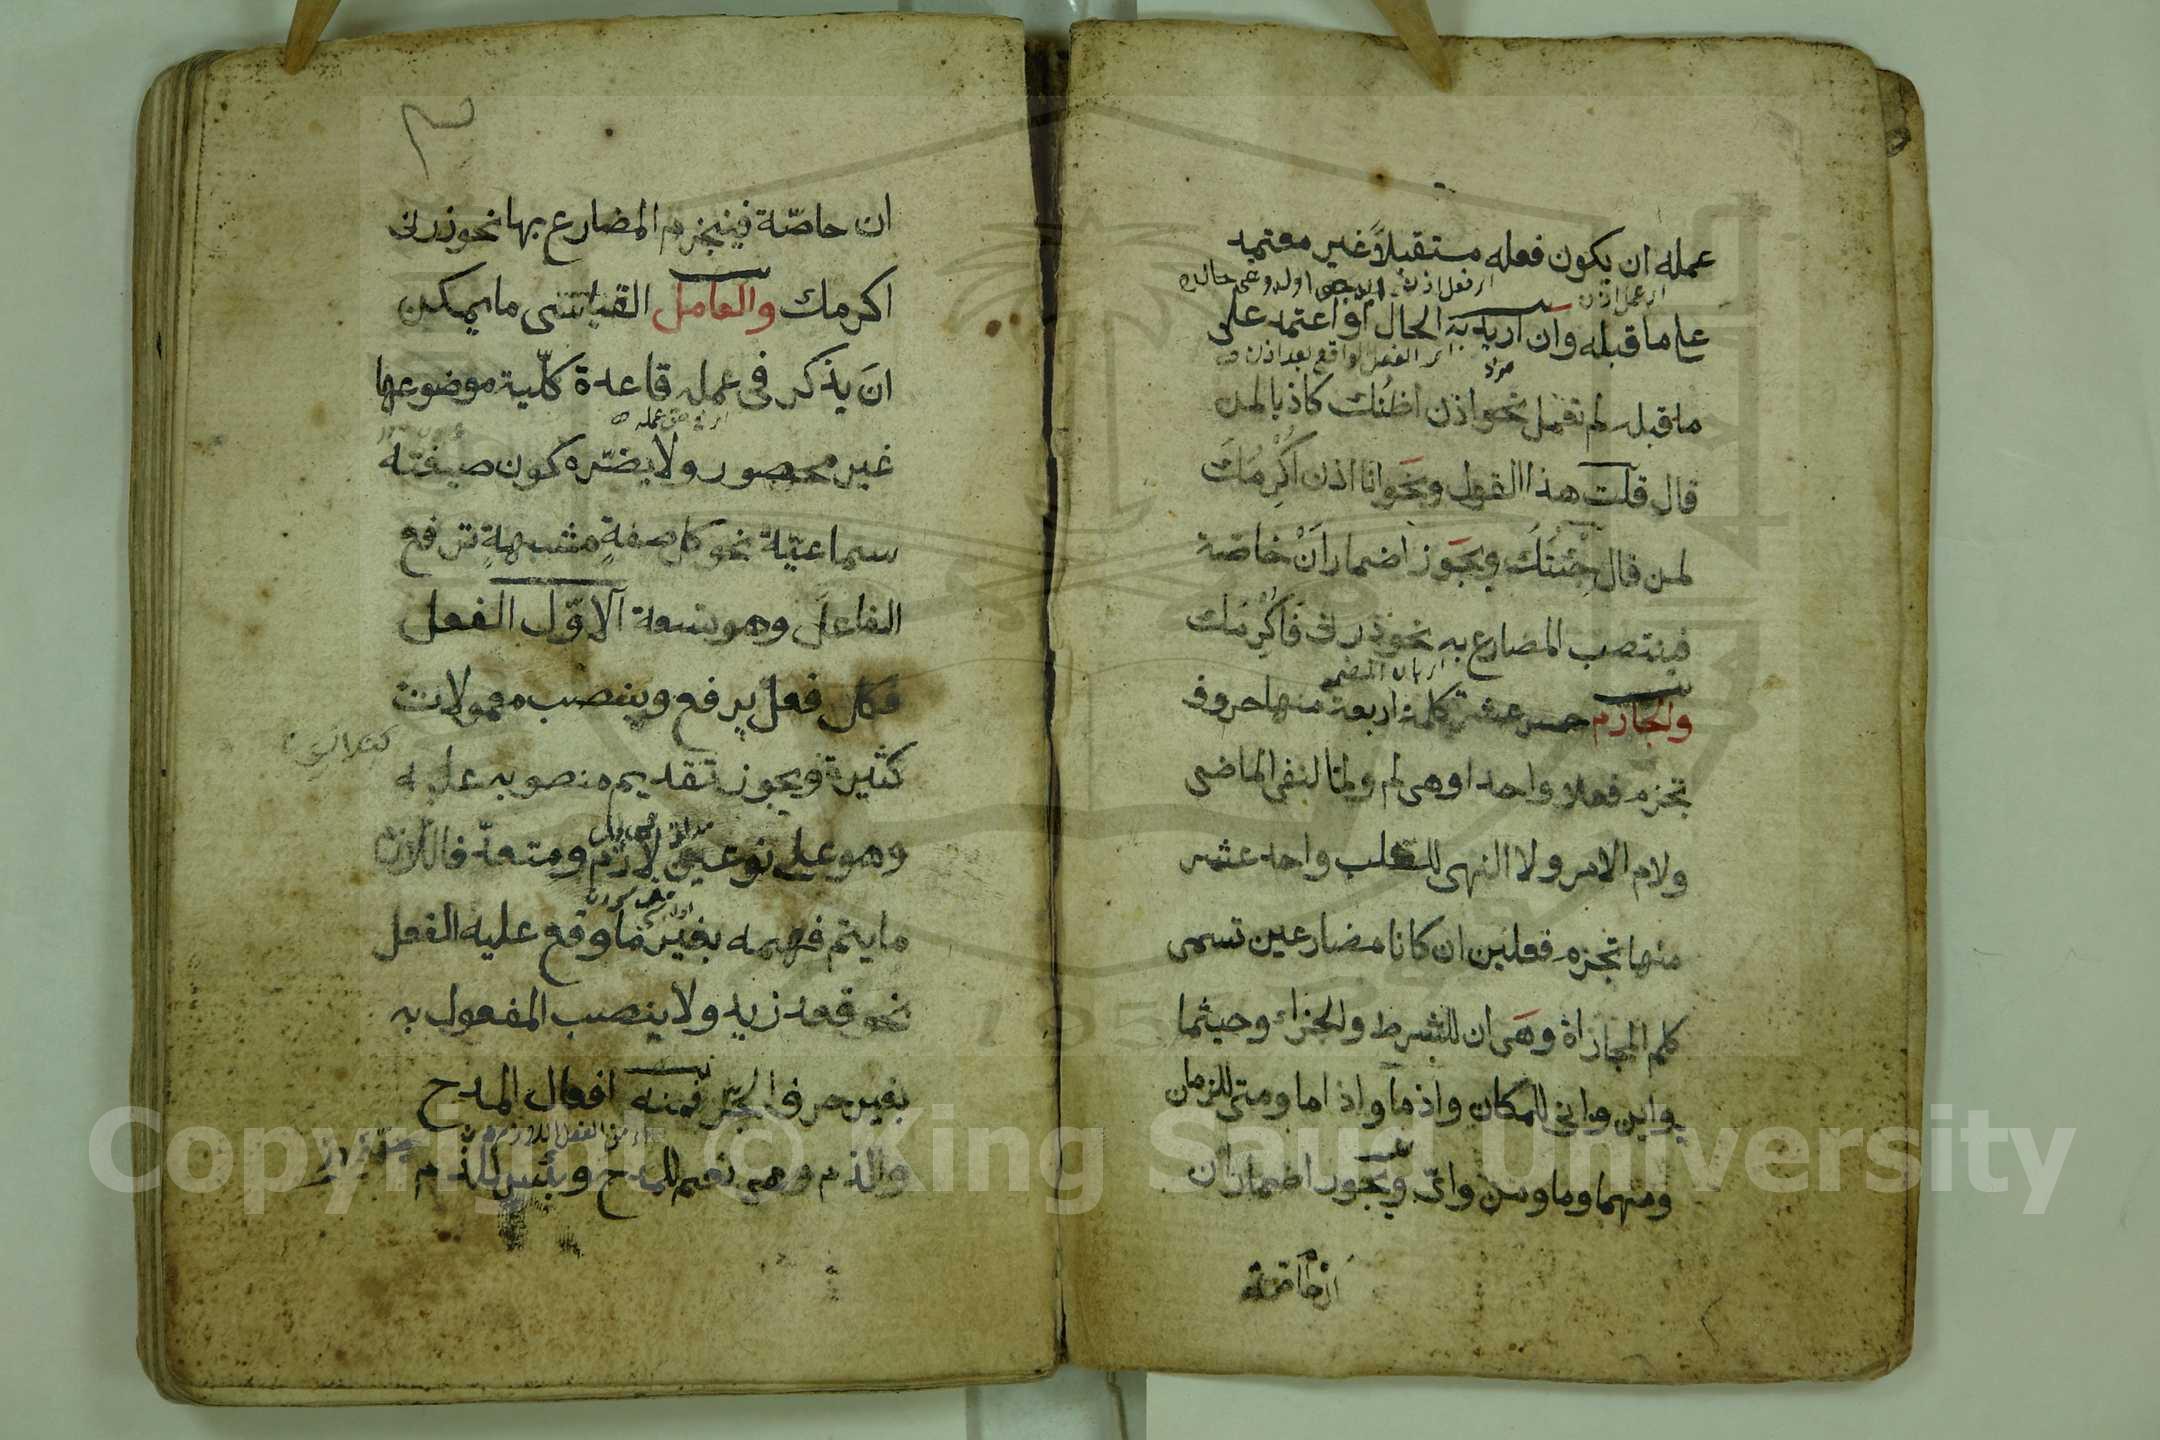 عمله ان يكون فعله مستقبلاً غير معتمد
على ما قبله وان اريد به الحال او اعتمد على
ما قبله لم تعمل نحو اذن اظنك كاذبا لمن
قال قلت هذا القول ونحو انا اذن اكرمك
لمن قال جئتك ويجوز اضمار ان خاصة
فينتصب المضارع به نحو زرنى فاكرمك
والجازم خمس عشرة كلمة اربعة منها حروف
تجزم فعلا واحدا وهى لم ولما لنفى الماضى
ولام الامر ولا النهى للطلب واحد عشر
منها تجزم فعلين ان كانا مضارعين تسمى
كلم المجازاة وهى ان للشرط والجزاء وحيثما
واين وانى للمكان واذما واذاما ومتى للزمان
ومهما وما ومن واىّ ويجوز اضمار ان
ان خاصة
٣
ان خاصّة فينجزم المضارع بها نحو زرنى
اكرمك والعامل القياسى ما يمكن
ان يذكر فى عمله قاعدة كلّية موضوعها
غير محصور ولا يضرّه كون صيغته
سماعيّة نحو كل صفةٍ مشبهةٍ ترفع
الفاعل وهو تسعة الاوّل الفعل
فكل فعل يرفع وينصب معمولات
كثيرة ويجوز تقديم منصوبه عليه
وهو على نوعين لازم ومتعدّ فاللازم
ما يتم فهمه بغير ما وقع عليه الفعل
نحو قعد زيد ولا ينصب المفعول به
بغير حرف الجرّ فمنه افعال المدح
والذم وهى نعم للمدح وبئس للذم
Copyright © King Saud University